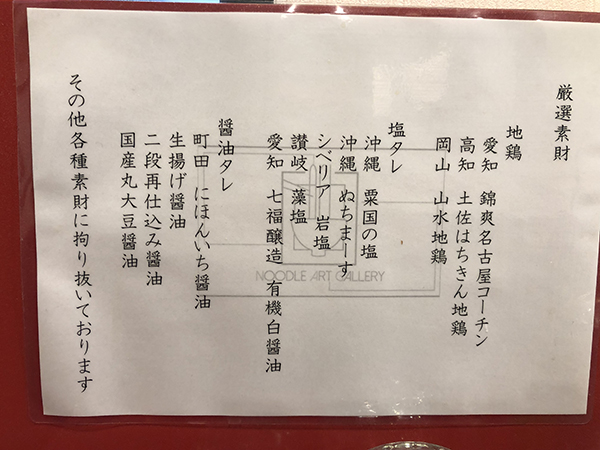 厳選素財
地鶏
愛知　錦爽名古屋コーチン
高知　土佐はちきん地鶏
岡山　山水地鶏
塩タレ
沖縄　粟国の塩
沖縄　ぬちまーす
シベリア　岩塩
讃岐　藻塩
愛知　七福醸造　有機白醤油
醤油タレ
町田　にほんいち醤油
生揚げ醤油
二段再仕込み醤油
国産丸大豆醤油
その他各種素財に拘り抜いております
NOODLE ART GALLERY